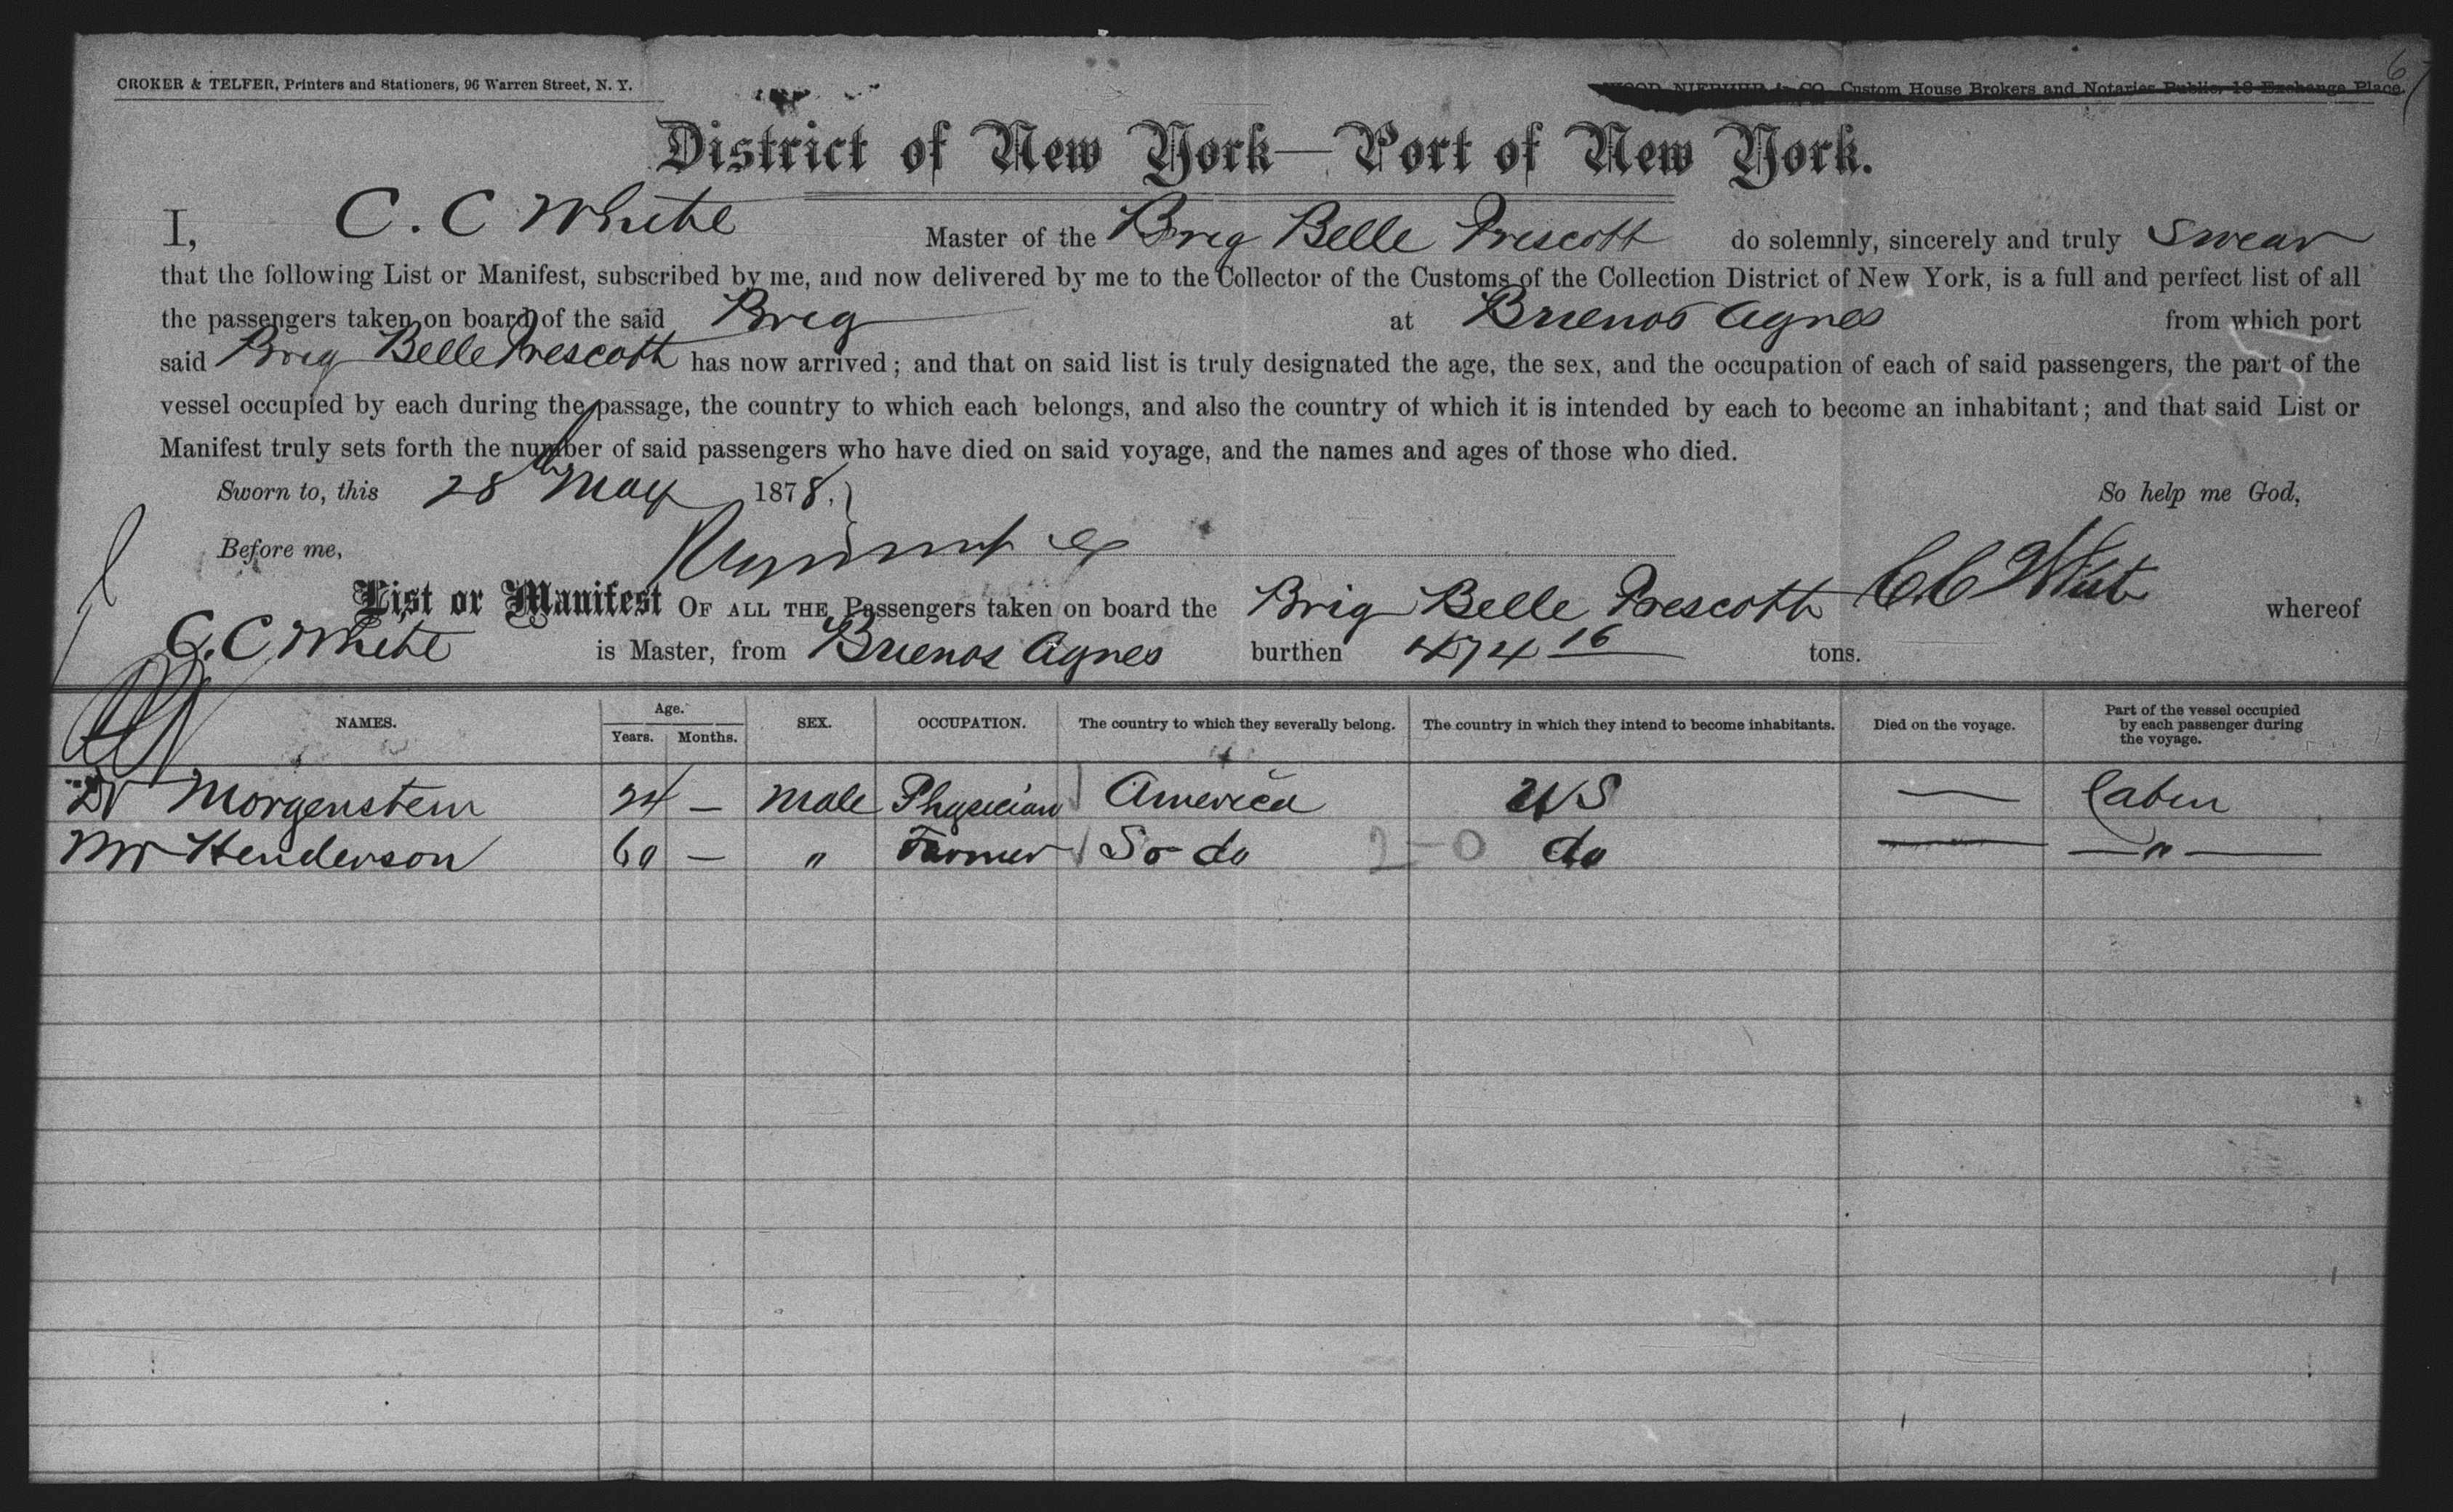 CROKER & TELFER, Printers and Stationers, 96 Warren Street, N. Y.
& CO. Custom House Brokers and Notaries Public, 18 Exchange Place.
6
District of New York—Port of New York.
I, C. C White Master of the Brig Belle Prescott do solemnly, sincerely and truly Swear
that the following List or Manifest, subscribed by me, and now delivered by me to the Collector of the Customs of the Collection District of New York, is a full and perfect list of all
the passengers taken on board of the said Brig at Buenos Ayres from which port
said Brig Belle Prescott has now arrived; and that on said list is truly designated the age, the sex, and the occupation of each of said passengers, the part of the
vessel occupied by each during the passage, the country to which each belongs, and also the country of which it is intended by each to become an inhabitant; and that said List or
Manifest truly sets forth the number of said passengers who have died on said voyage, and the names and ages of those who died.
Sworn to, this 28th May 1878. So help me God,
Before me,
C C White
List or Manifest OF ALL THE Passengers taken on board the Brig Belle Prescott whereof
C. C White is Master, from Buenos Ayres burthen 474 16 tons.
NAMES. Age. Years. Months. SEX. OCCUPATION. The country to which they severally belong. The country in which they intend to become inhabitants. Died on the voyage. Part of the vessel occupied by each passenger during the voyage.
Dr Morgenstern 24 — Male Physician America US — Cabin
Mr Henderson 60 — " Farmer So do 2-0 do — — " —